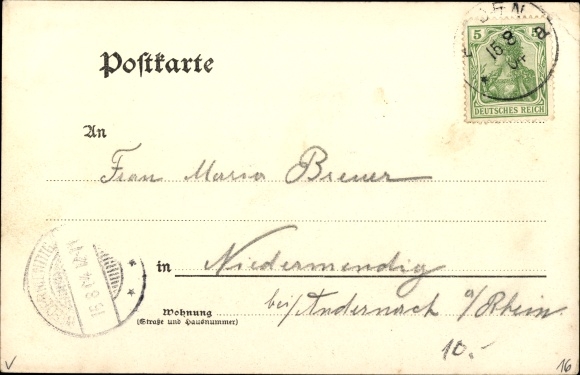 Postkarte
5 5
DEUTSCHES REICH
15 8
04
a
An
Frau Maria Breuer
in Niedermendig
bei/Andernach a/Rhein.
Wohnung
(Straße und Hausnummer)
15.8.04
10.-
16